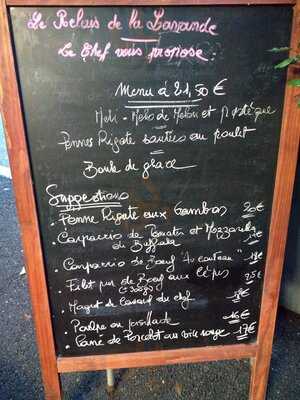 Le Relais de la Lavande
Le Chef vous propose:
Menu à 21,50 €
Méli-Mélo de Melon et Pastèque
Pennes Rigate sautées au poulet
Boule de glace
Suggestions
. Penne Rigate aux Gambas 20€
. Carpaccio de Tomates et Mozzarella
di Buffala
. Carpaccio de Boeuf "Au couteau" 19€
. Filet pur de Boeuf aux Cèpes
25€
. Magret de Canard du chef
. Poulpe en persillade 16€
. Carré de Porcelet au vin rouge 17€